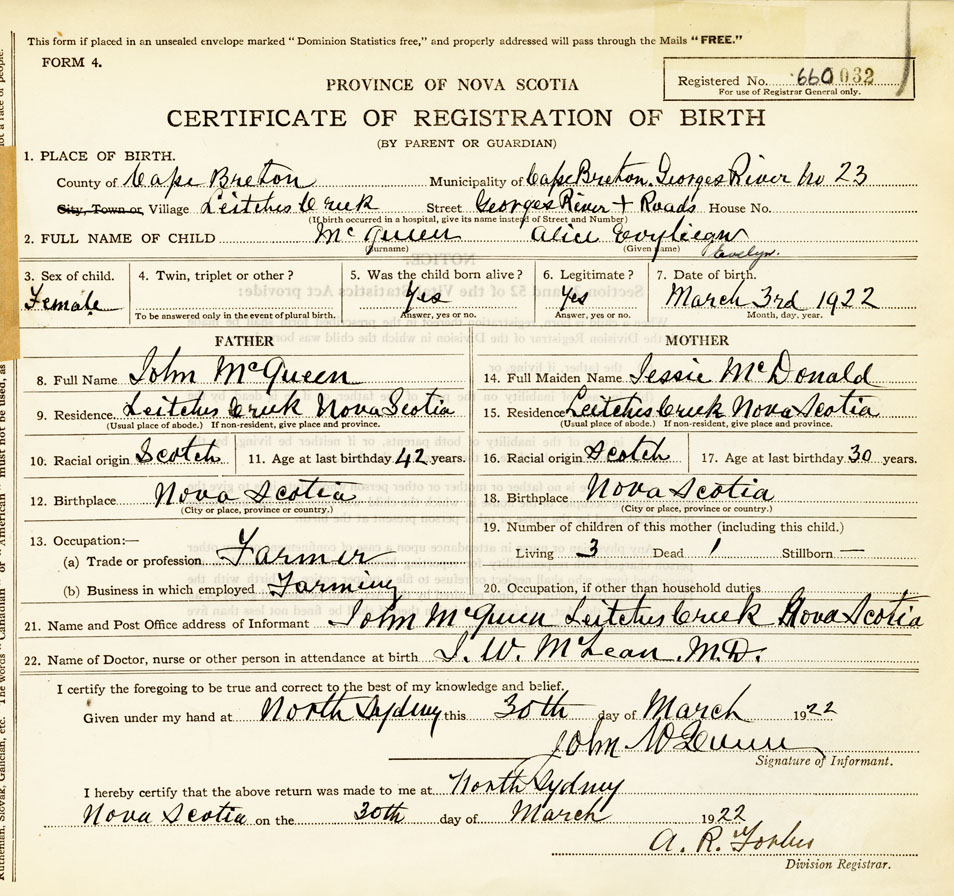 This form if placed in an unsealed envelope marked "Dominion Statistics free," and properly addressed will pass through the Mails "FREE."
FORM 4.
Registered No. 660032
For use of Registrar General only.
PROVINCE OF NOVA SCOTIA
CERTIFICATE OF REGISTRATION OF BIRTH
(BY PARENT OR GUARDIAN)
1. PLACE OF BIRTH.
County of Cape Breton Municipality of Cape Breton. Georges River No 23
City, Town or Village Leitches Creek Street Georges River + Roads House No.
(If birth occurred in a hospital, give its name instead of Street and Number)
2. FULL NAME OF CHILD McQueen Alice
(Surname) (Given name)
Evelyn.
3. Sex of child. 4. Twin, triplet or other? 5. Was the child born alive? 6. Legitimate? 7. Date of birth.
Female Yes Yes March 3rd 1922
To be answered only in the event of plural birth. Answer, yes or no. Answer, yes or no. Month, day, year.
FATHER MOTHER
8. Full Name John McQueen 14. Full Maiden Name Jessie McDonald
9. Residence Leitches Creek Nova Scotia 15. Residence Leitches Creek Nova Scotia
(Usual place of abode.) If non-resident, give place and province. (Usual place of abode.) If non-resident, give place and province.
10. Racial origin Scotch 11. Age at last birthday 42 years. 16. Racial origin Scotch 17. Age at last birthday 30 years.
12. Birthplace Nova Scotia 18. Birthplace Nova Scotia
(City or place, province or country.) (City or place, province or country.)
13. Occupation:— 19. Number of children of this mother (including this child.)
(a) Trade or profession Farmer Living 3 Dead 1 Stillborn —
(b) Business in which employed Farming 20. Occupation, if other than household duties
21. Name and Post Office address of Informant John McQueen Leitches Creek Nova Scotia
22. Name of Doctor, nurse or other person in attendance at birth J. W. McLean. M.D.
I certify the foregoing to be true and correct to the best of my knowledge and belief.
Given under my hand at North Sydney this 30th day of March 1922
John McQueen
Signature of Informant.
I hereby certify that the above return was made to me at North Sydney
Nova Scotia on the 30th day of March 1922
A. R. Forbes
Division Registrar.